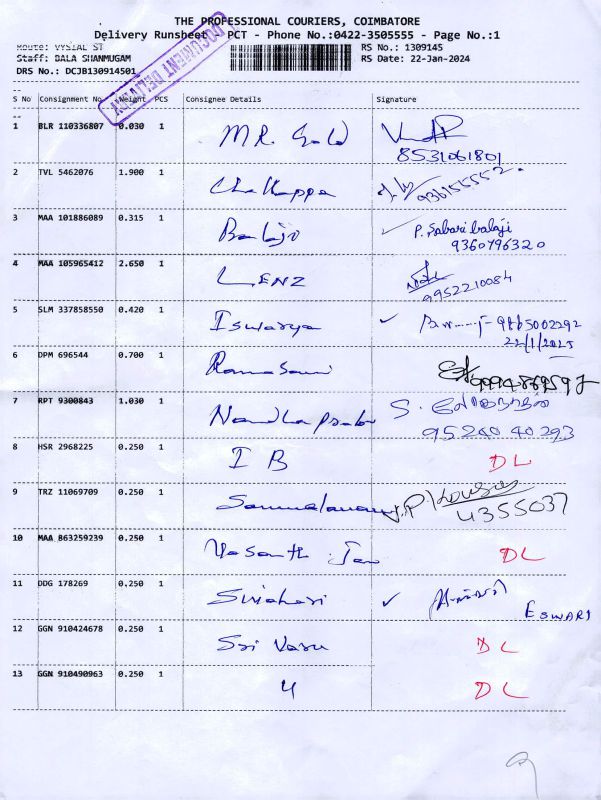 THE PROFESSIONAL COURIERS, COIMBATORE
Delivery Runsheet - PCT - Phone No.:0422-3505555 - Page No.:1
Route: VYSIAL ST
RS No.: 1309145
Staff: BALA SHANMUGAM
RS Date: 22-Jan-2024
DRS No.: DCJB130914501
DOCUMENT DELIVERY
S No Consignment No Weight PCS Consignee Details Signature
1 BLR 110336807 0.030 1 MR. Gold
8531061801
2 TVL 5462076 1.900 1 Chellappa
936155552.
3 MAA 101886089 0.315 1 Balaji P. Sabari balaji
9360796320
4 MAA 105965412 2.650 1 LENZ
9952210084
5 SLM 337858550 0.420 1 Iswarya
22/1/2025
6 DPM 696544 0.700 1 Ramasami
7 RPT 9300843 1.030 1 Nandha prabu S.
95240 40293
8 HSR 2968225 0.250 1 I B DL
9 TRZ 11069709 0.250 1
4355037
10 MAA 863259239 0.250 1 Vasanth DL
11 DDG 178269 0.250 1 Sivahari
ESWARI
12 GGN 910424678 0.250 1 Sri Vasu DL
13 GGN 910490963 0.250 1 4 DL